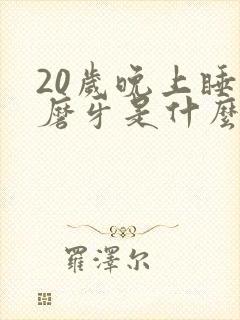 20歲晚上睡
磨牙是什麼
羅澤尔